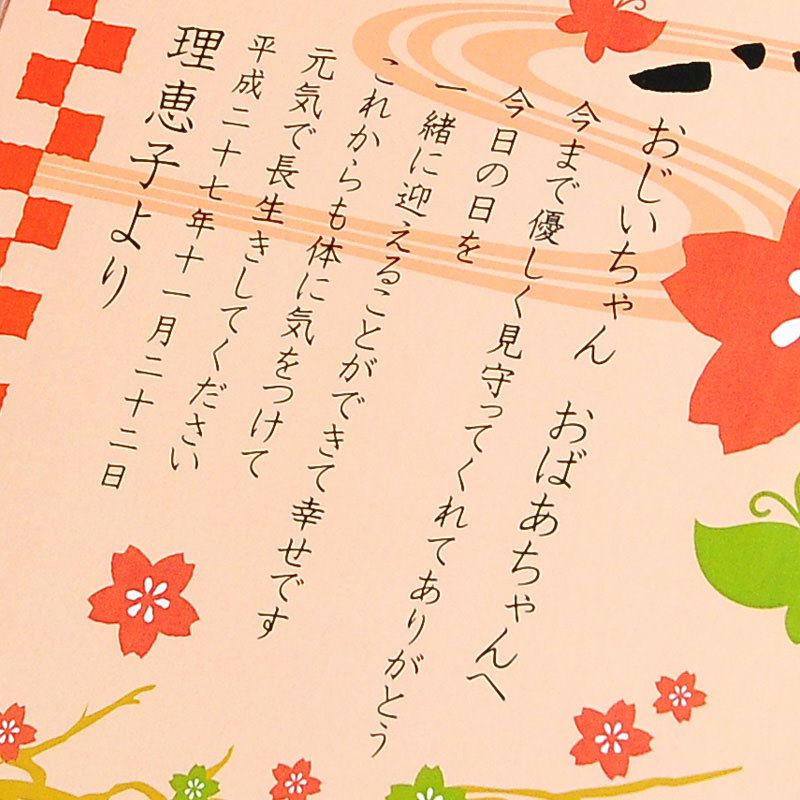 おじいちゃん おばあちゃんへ
今まで優しく見守ってくれてありがとう
今日の日を
一緒に迎えることができて幸せです
これからも体に気をつけて
元気で長生きしてください
平成二十七年十一月二十二日
理恵子より